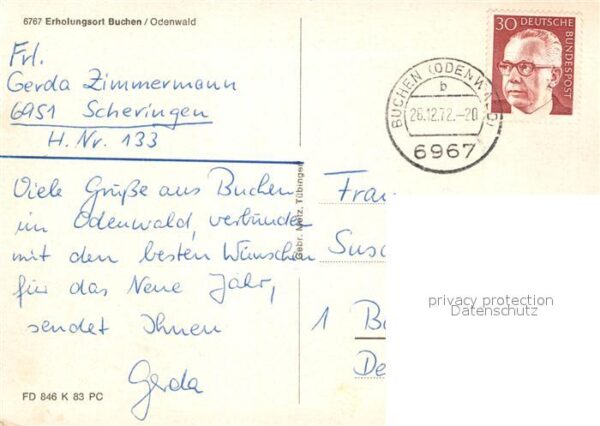 6767 Erholungsort Buchen / Odenwald
Frl.
Gerda Zimmermann
6951 Scheringen
H. Nr. 133
Viele Grüße aus Buchen
im Odenwald, verbunden
mit den besten Wünschen
für das Neue Jahr,
sendet Ihnen
Gerda
FD 846 K 83 PC
Gebr. Metz, Tübingen
30 DEUTSCHE
BUNDESPOST
BUCHEN (ODENWALD)
b
26.12.72.-20
6967
Frau
Susa
1 B
De
privacy protection
Datenschutz